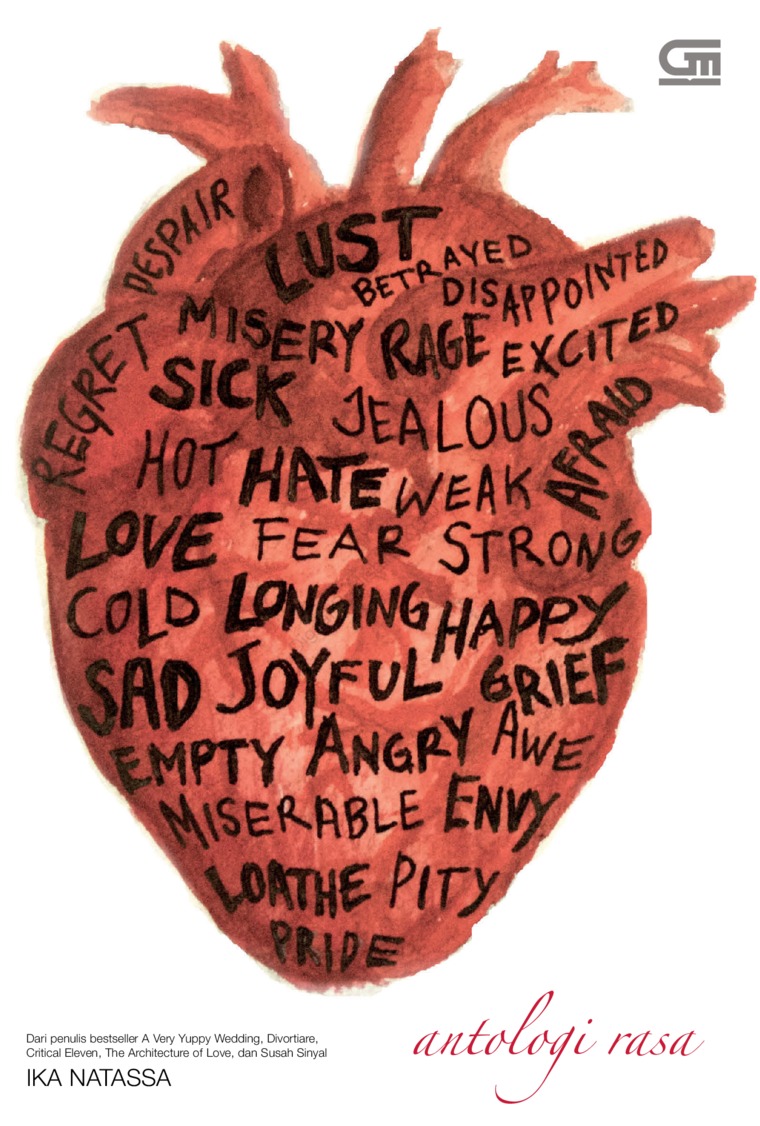 GM
DESPAIR
LUST
BETRAYED
DISAPPOINTED
REGRET
MISERY RAGE EXCITED
SICK JEALOUS AFRAID
HOT HATE WEAK
LOVE FEAR STRONG
COLD LONGING HAPPY
SAD JOYFUL GRIEF
EMPTY ANGRY AWE
MISERABLE ENVY
LOATHE PITY
PRIDE
Dari penulis bestseller A Very Yuppy Wedding, Divortiare,
Critical Eleven, The Architecture of Love, dan Susah Sinyal
IKA NATASSA
antologi rasa